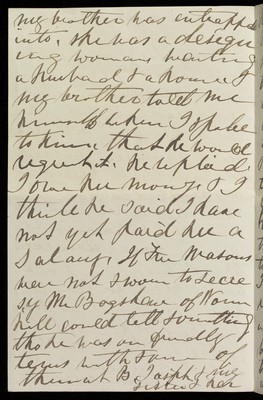 my brother was entrapped
into, she was a design
ing woman wanting
a Husband & a Home &
my brother told me
himself when I spoke
to him, that he would
regret it. he replied
I owe her money & I
think he said I have
not yet paid her a
salary. If Free Masons
were not sworn to secre
sy Mr Bagshawe of
hill could tell something
tho he was on friendly
terms with some of
them at B. Joseph & my
sister & her